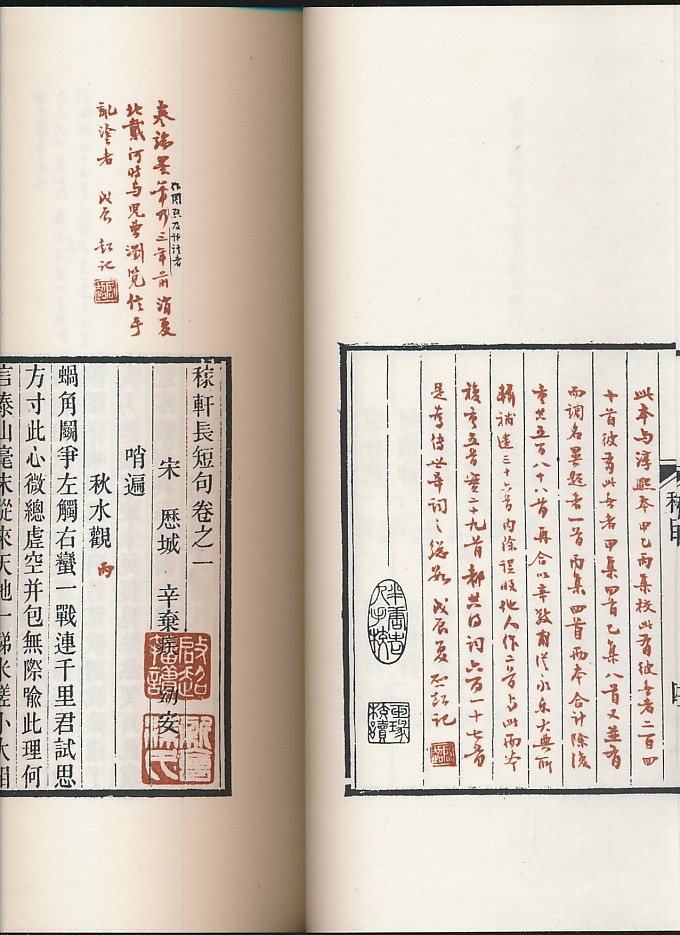 此本与淳熙本甲乙丙集校此有彼無者二百四
十首彼有此無者甲集四首乙集八首又并有
而調名異題者一首丙集四首兩本合計除複
重共五百八十八首再合以辛敬甫從永樂大典所
輯補遺三十六首內除誤收他人作二首與此兩本
複重五首實二十九首都共得詞六百一十七首
是為傳世辛詞之總數 戊辰夏 啟超記
卷端墨筆乃三年前消夏
作圈點及評注者
北戴河時与兒曹瀏覽信手
亂塗者 戊辰 超記
稼軒長短句卷之一
宋 歷城 辛棄疾 幼安
哨遍
秋水觀 丙
蝸角鬭爭左觸右蠻一戰連千里君試思
方寸此心微總虛空并包無際喻此理何
言泰山毫末從來天地一稊米嗟小大相